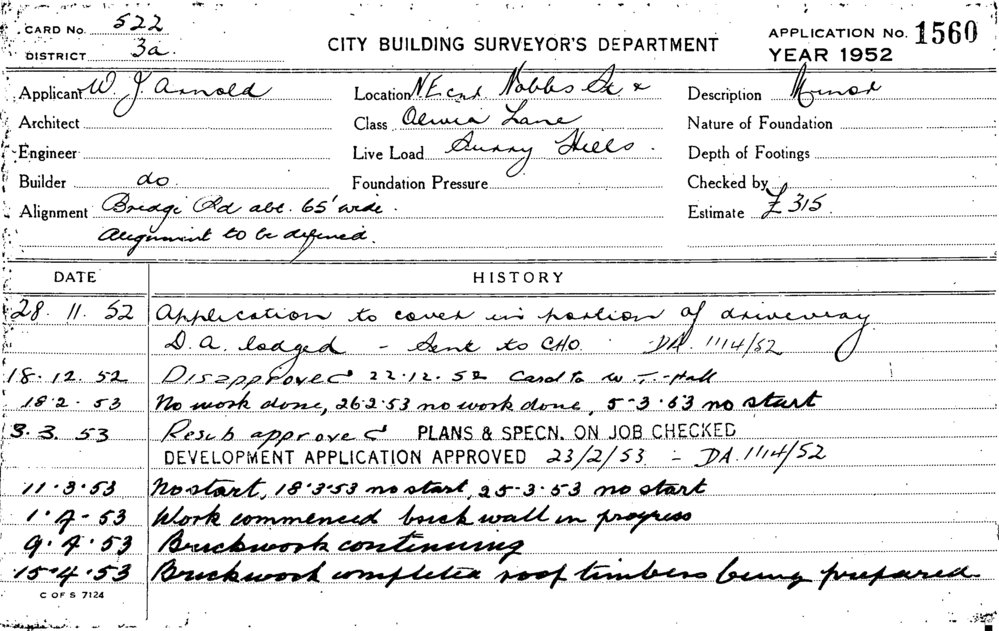 CARD No. 522
DISTRICT 3a
CITY BUILDING SURVEYOR'S DEPARTMENT
APPLICATION No. 1560
YEAR 1952
Applicant W. J. Arnold
Location N.E. cnr. Nobbs St &
Description Minor
Architect
Class Olivia Lane
Nature of Foundation
Engineer
Live Load Surry Hills.
Depth of Footings
Builder do
Foundation Pressure
Checked by
Alignment Bredgi Rd abt. 65' wide.
Estimate £315
Alignment to be defined.
DATE HISTORY
28. 11. 52 Application to cover in portion of driveway
D.A. lodged - Sent to CHO. DA. 1114/52
18.12.52 Disapproved 22.12.52 Card to W. T. Hall
18.2.53 No work done, 26.2.53 no work done, 5-3.53 no start
3.3.53 Resub approved PLANS & SPECN. ON JOB CHECKED
DEVELOPMENT APPLICATION APPROVED 23/2/53 - DA.1114/52
11.3.53 No start, 18.3.53 no start, 25-3.53 no start
1.4.53 Work commenced brick wall in progress
9.4.53 Brickwork continuing
15.4.53 Brickwork completed roof timbers being prepared.
C OF S 7124